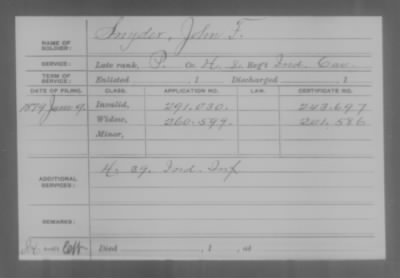 NAME OF SOLDIER: Snyder, John F.
SERVICE: Late rank, P. Co. H, 8 Reg't Ind. Cav.
TERM OF SERVICE: Enlisted , 1 Discharged , 1
DATE OF FILING. CLASS. APPLICATION NO. LAW. CERTIFICATE NO.
1879 June 9. Invalid, 291.030. 243.697
Widow, 260.599. 201.586
Minor,
ADDITIONAL SERVICES: H. 39. Ind. Inf
REMARKS:
Died , 1 , at